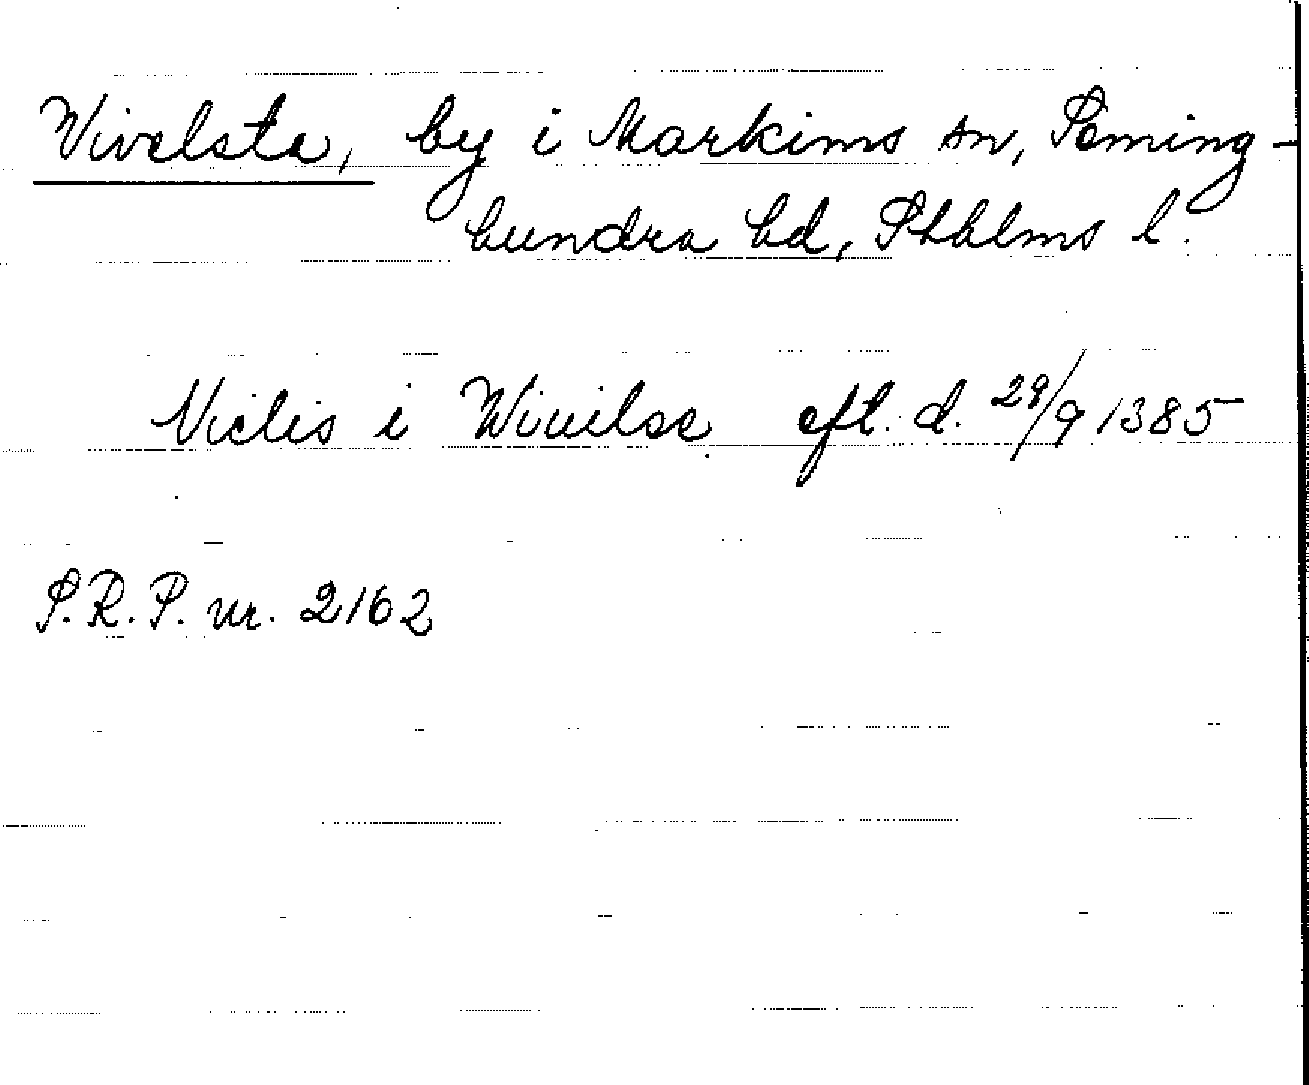 Vivelsta, by i Markims sn, Seming-
hundra hd, Sthlms l.
Niclis i Wiuilsæ eft. d. 29/9 1385
S.R.P. nr. 2162